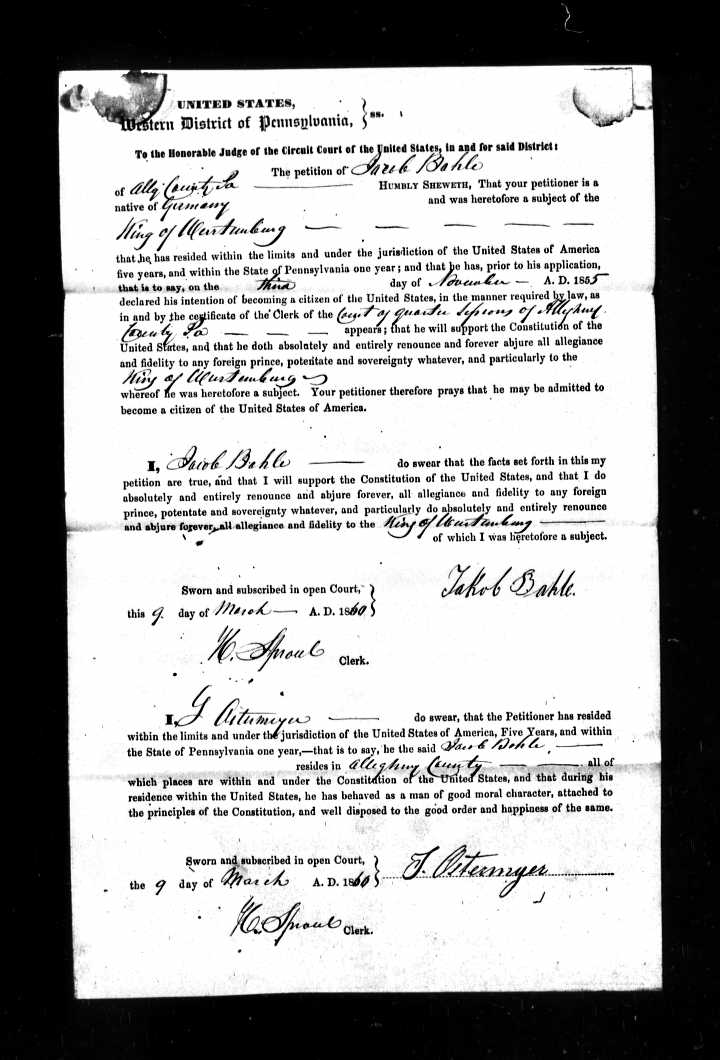 UNITED STATES,
Western District of Pennsylvania, } ss.
To the Honorable Judge of the Circuit Court of the United States, in and for said District:
The petition of Jacob Bahle
of Allg County Pa HUMBLY SHEWETH, That your petitioner is a
native of Germany and was heretofore a subject of the
King of Wurtemburg — — — —
that he has resided within the limits and under the jurisdiction of the United States of America
five years, and within the State of Pennsylvania one year; and that he has, prior to his application,
that is to say, on the third day of November — A. D. 1855
declared his intention of becoming a citizen of the United States, in the manner required by law, as
in and by the certificate of the Clerk of the Court of quarter Sessions of Allegheny
County Pa — — — appears; that he will support the Constitution of the
United States, and that he doth absolutely and entirely renounce and forever abjure all allegiance
and fidelity to any foreign prince, potentate and sovereignty whatever, and particularly to the
King of Wurtemburg
whereof he was heretofore a subject. Your petitioner therefore prays that he may be admitted to
become a citizen of the United States of America.
I, Jacob Bahle — do swear that the facts set forth in this my
petition are true, and that I will support the Constitution of the United States, and that I do
absolutely and entirely renounce and abjure forever, all allegiance and fidelity to any foreign
prince, potentate and sovereignty whatever, and particularly do absolutely and entirely renounce
and abjure forever, all allegiance and fidelity to the King of Wurtemburg —
of which I was heretofore a subject.
Sworn and subscribed in open Court,
this 9 day of March — A. D. 1860 } Jakob Bahle.
H. Sproul Clerk.
I, G Ostermeyer — do swear, that the Petitioner has resided
within the limits and under the jurisdiction of the United States of America, Five Years, and within
the State of Pennsylvania one year,—that is to say, he the said Jacob Bahle, —
resides in Allegheny County — — all of
which places are within and under the Constitution of the United States, and that during his
residence within the United States, he has behaved as a man of good moral character, attached to
the principles of the Constitution, and well disposed to the good order and happiness of the same.
Sworn and subscribed in open Court,
the 9 day of March A. D. 1860 } Ostermyer
H. Sproul Clerk.